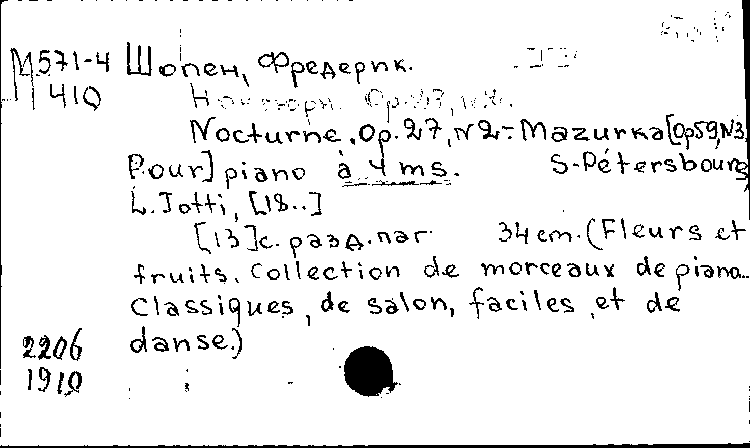 М 571-4 Шопен, Фредерик.
410 Ноктюрн. Op. 27, N2.
Nocturne. Op. 27, N2.- Mazurka [Op59, N3.
Pour] piano à 4 ms. S-Pétersbourg,
L. Jotti, [18..]
[13] с. разд. паг. 34 cm. (Fleurs et
fruits. Collection de morceaux de piano...
Classiques, de salon, faciles et de
danse.)
2206
1910